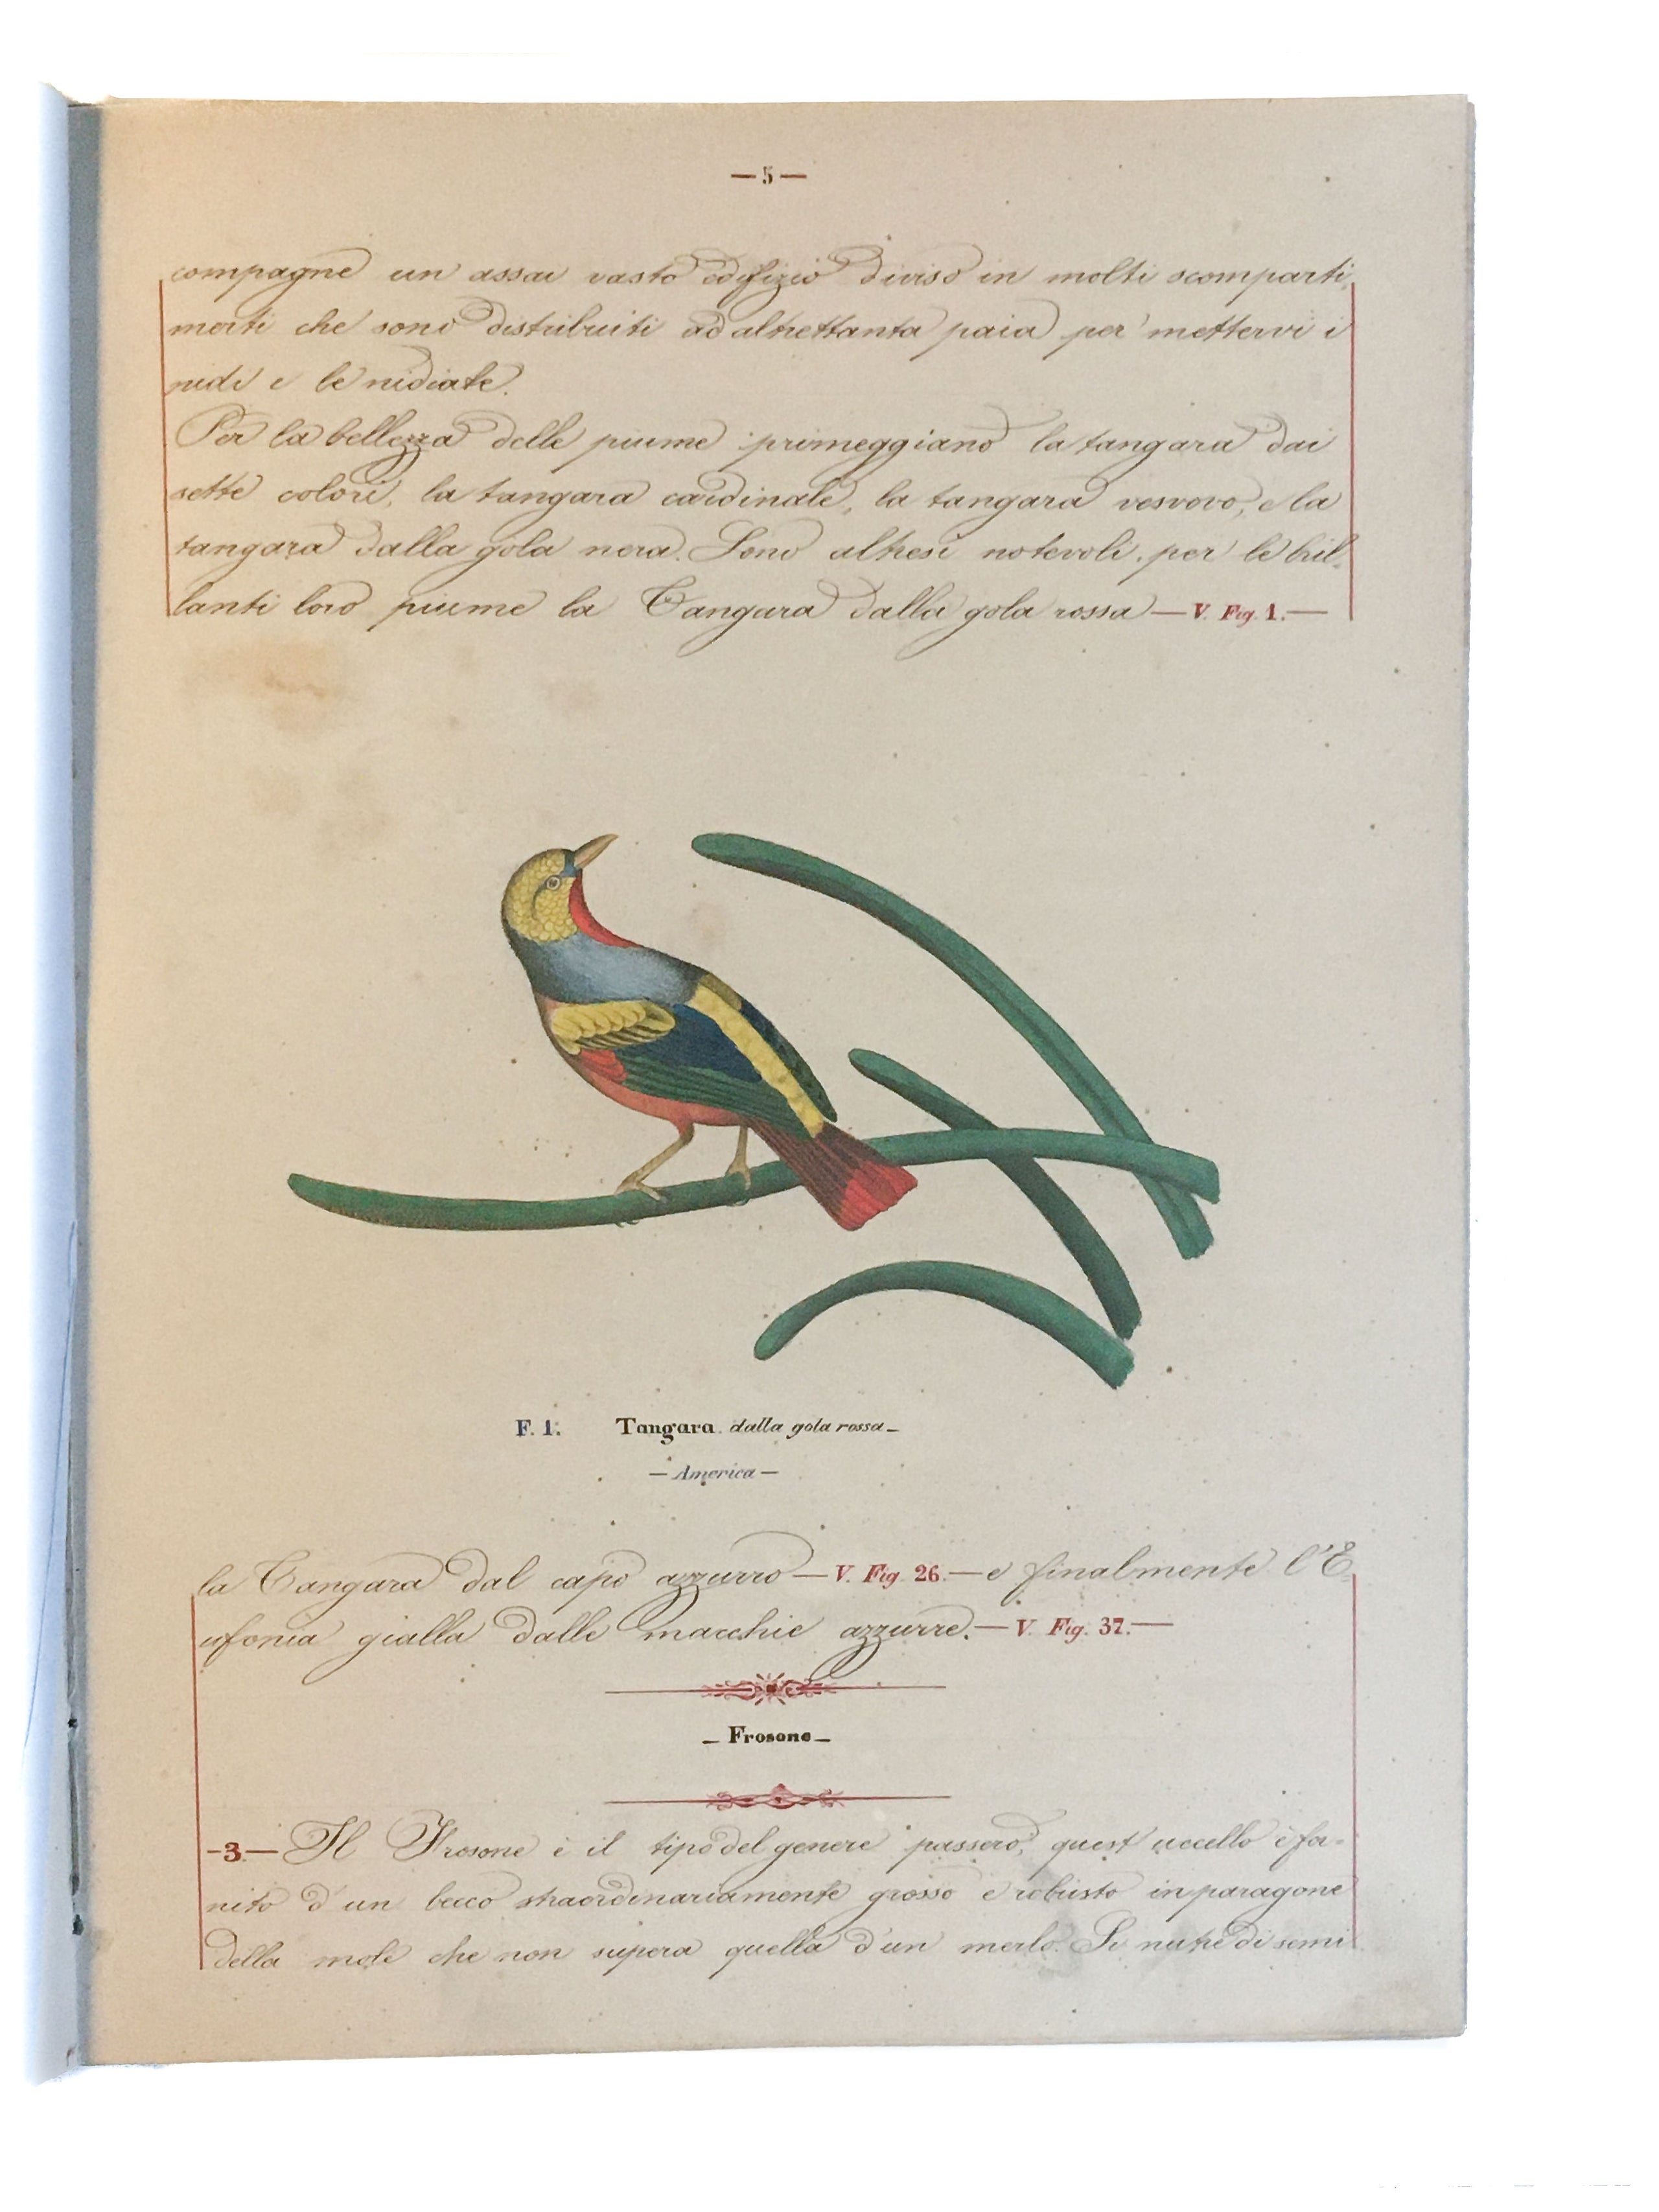 — 5 —
compagne un assai vasto edifizio diviso in molti scomparti,
menti che sono distribuiti ad altrettanta paia per mettervi i
nidi e le nidiate.
Per la bellezza delle piume primeggiano la tangara dai
sette colori, la tangara cardinale, la tangara vesvovo, e la
tangara dalla gola nera. Sono altresì notevoli per le bril-
lanti loro piume la Tangara dalla gola rossa — V. Fig. 1. —
F. 1. Tangara dalla gola rossa —
— America —
la Tangara dal capo azzurro — V. Fig. 26. — e finalmente l'E-
ufonia gialla dalle macchie azzurre. — V. Fig. 37. —
— Frosone —
-3.— Il Frosone è il tipo del genere passero; quest uccello è for-
nito d'un becco straordinariamente grosso e robusto in paragone
della mole che non supera quella d'un merlo. Si nutre di semi